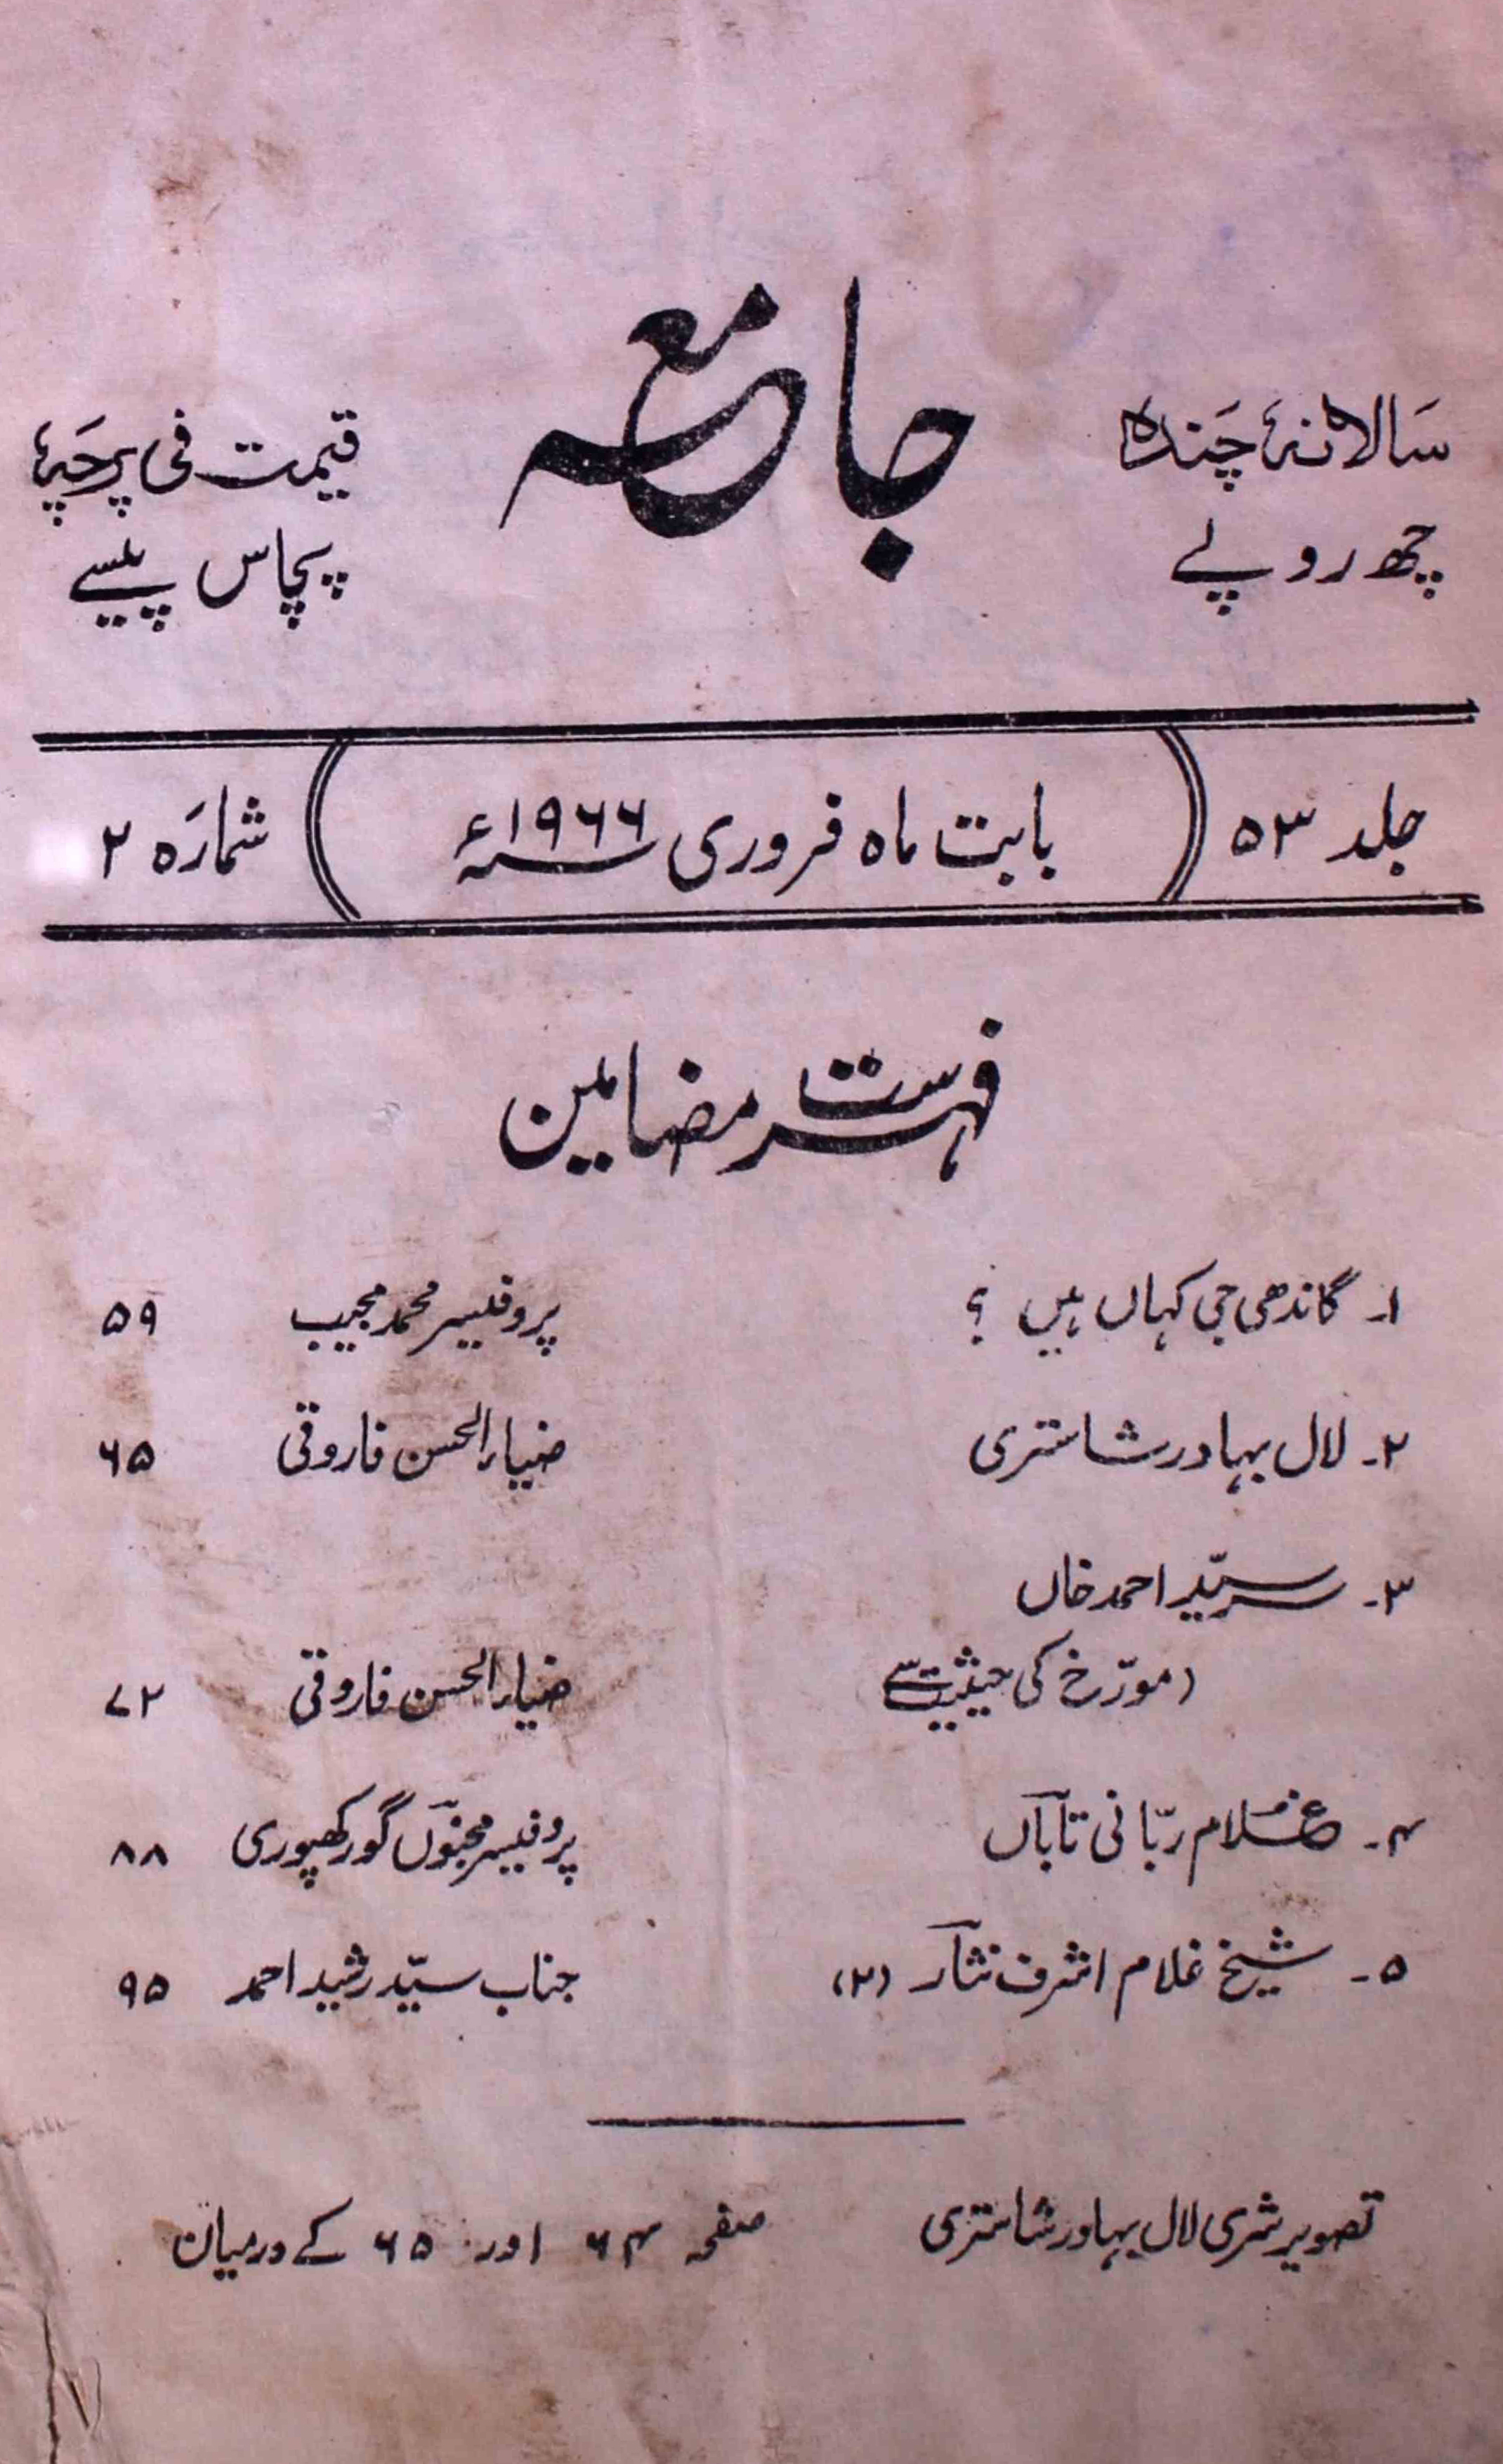 جامعہ
سالانہ چندہ
چھ روپے
قیمت فی پرچہ
پچاس پیسے
جلد ۵۳
بابت ماہ فروری ۱۹۶۶ء
شمارہ ۲
فہرست مضامین
۱۔ گاندھی جی کہاں ہیں ؟ پروفیسر محمد مجیب ۵۹
۲۔ لال بہادر شاستری ضیاء الحسن فاروقی ۶۵
۳۔ سرسیّد احمد خاں
(مورّخ کی حیثیت سے ضیاء الحسن فاروقی ۷۲
۴۔ غلام ربّانی تاباں پروفیسر مجنوں گورکھپوری ۸۸
۵۔ شیخ غلام اشرف نثار (۲) جناب سیّد رشید احمد ۹۵
تصویر شری لال بہادر شاستری صفحہ ۶۴ اور ۶۵ کے درمیان